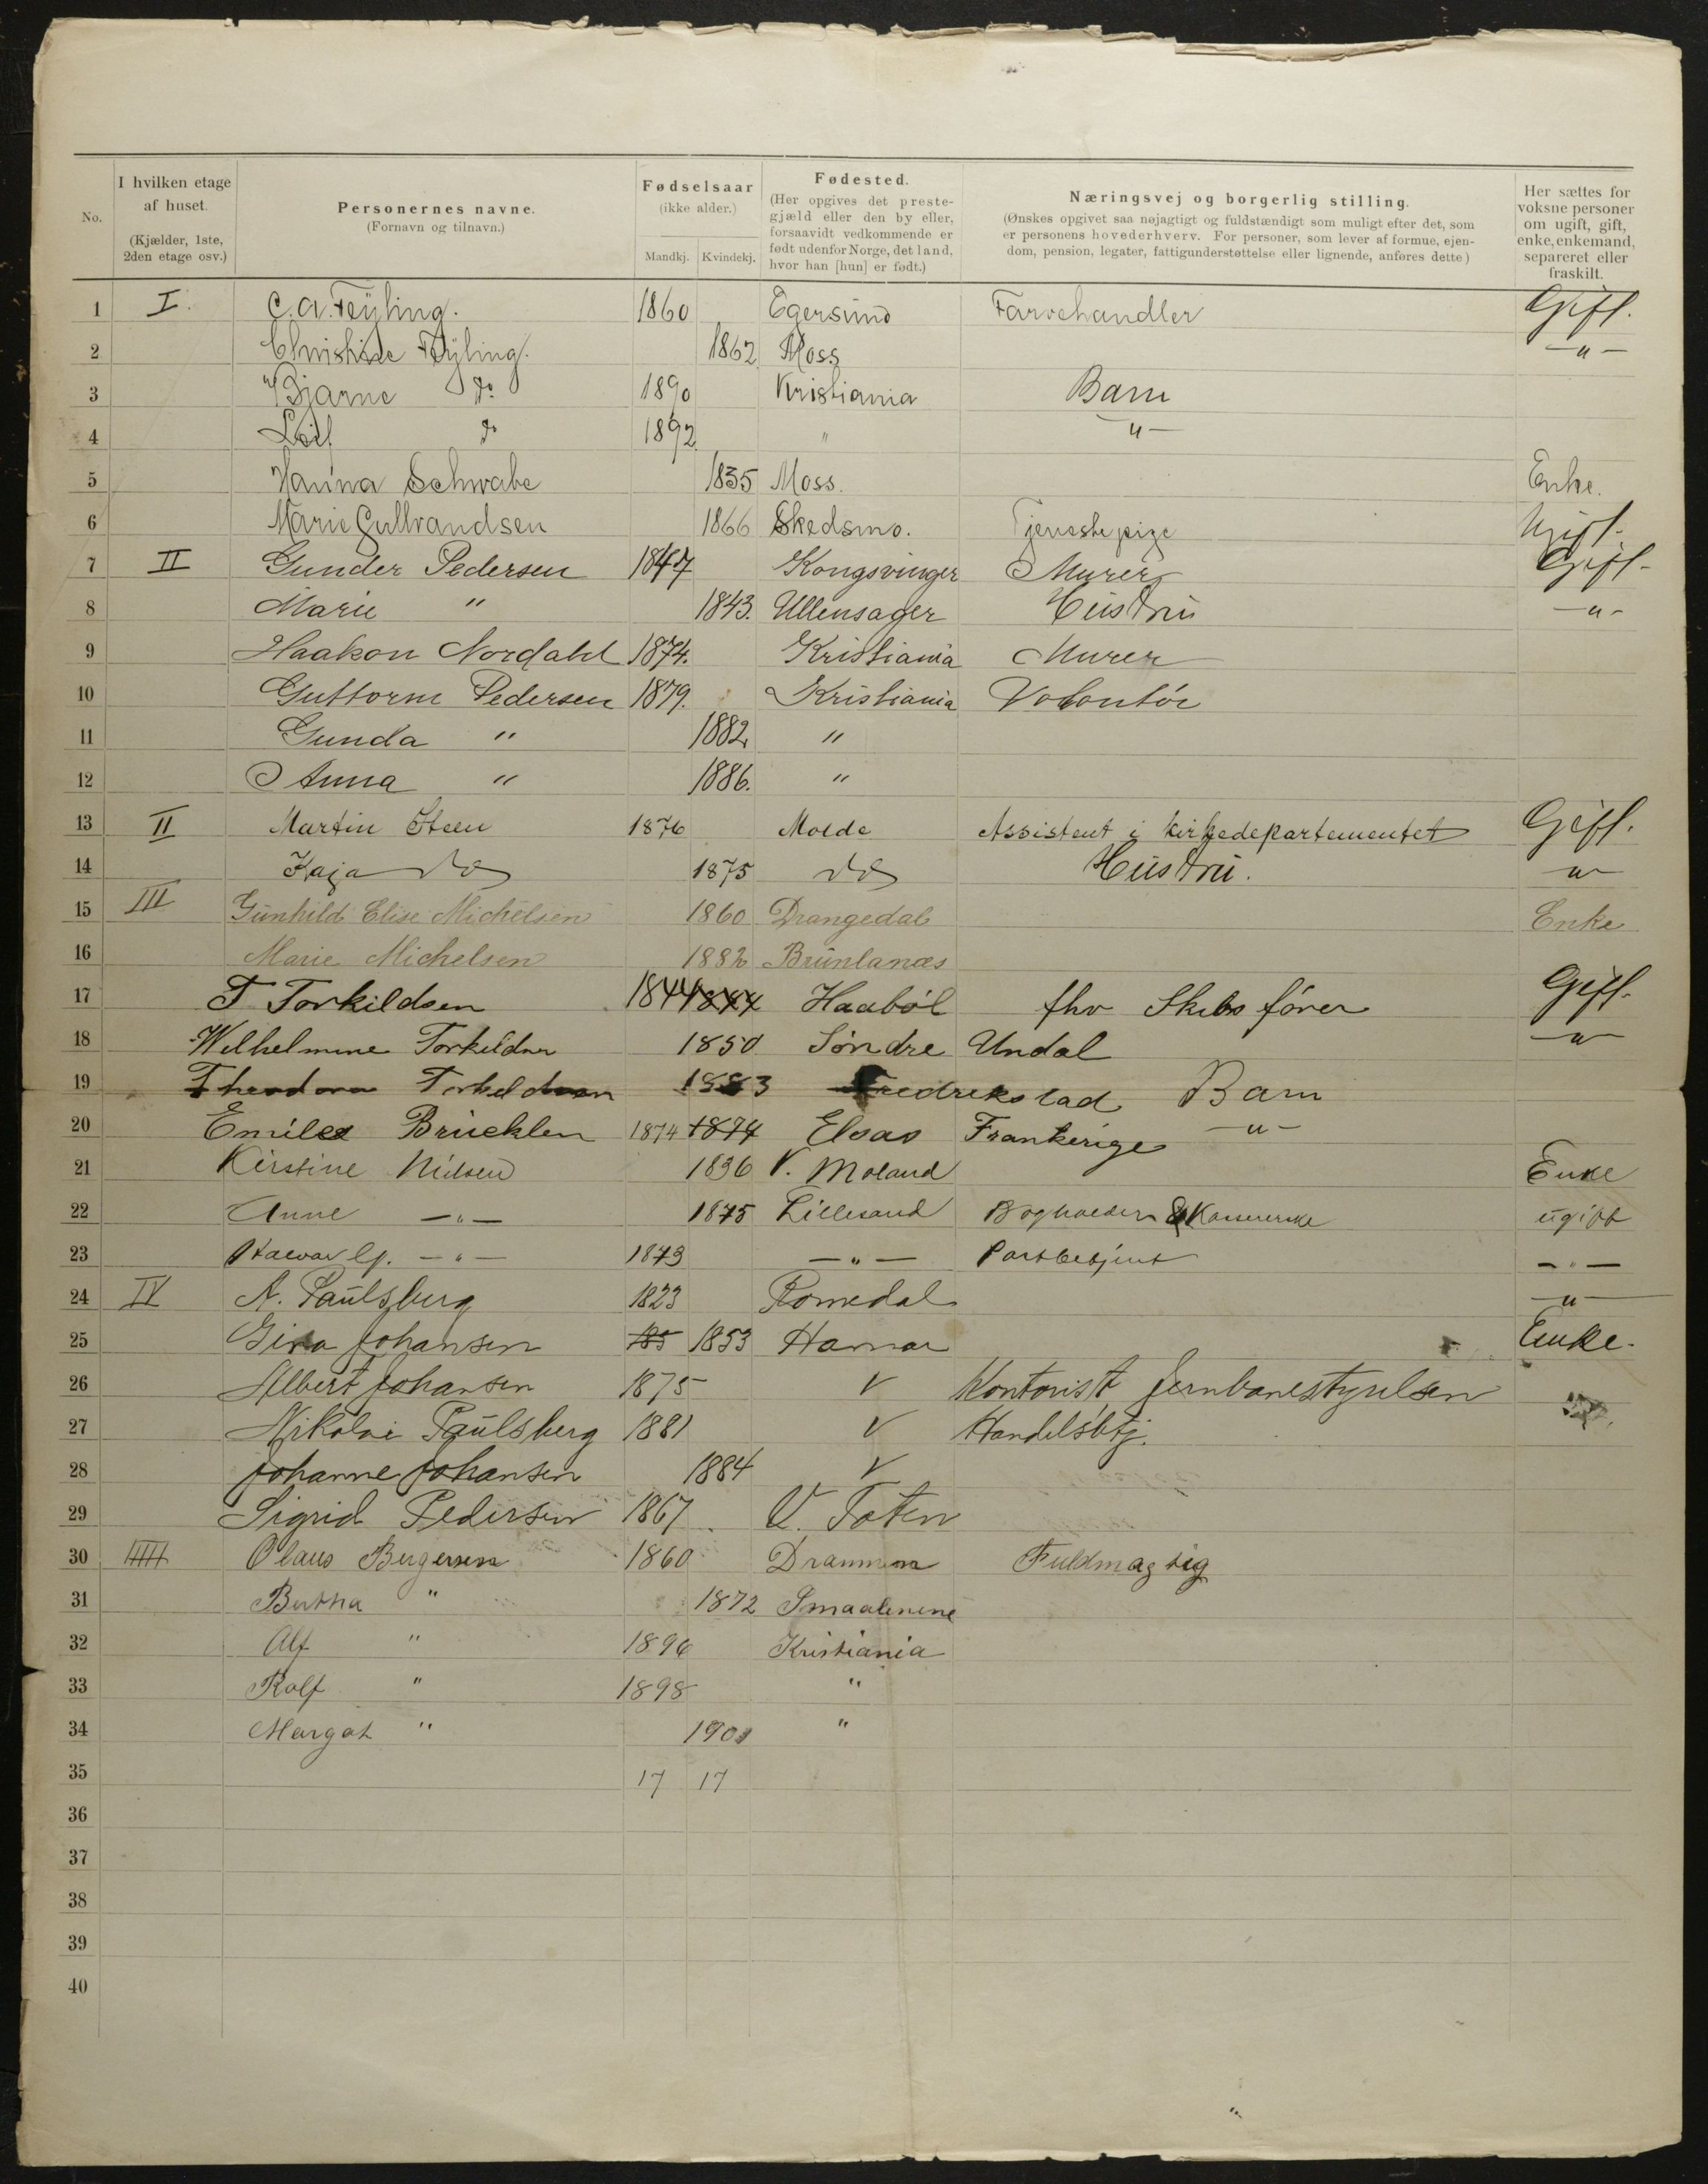 No. | I hvilken etage af huset. (Kjælder, 1ste, 2den etage osv.) | Personernes navne. (Fornavn og tilnavn.) | Fødselsaar (ikke alder.) Mandkj. Kvindekj. | Fødested. (Her opgives det prestegjæld eller den by eller, forsaavidt vedkommende er født udenfor Norge, det land, hvor han [hun] er født.) | Næringsvej og borgerlig stilling. (Ønskes opgivet saa nøjagtigt og fuldstændigt som muligt efter det, som er personens hovederhverv. For personer, som lever af formue, ejendom, pension, legater, fattigunderstøttelse eller lignende, anføres dette) | Her sættes for voksne personer om ugift, gift, enke, enkemand, separeret eller fraskilt.
1 I. C. A. Feyling. 1860 Egersund Farvehandler Gift.
2 Christine Feyling. 1862 Moss — " —
3 Bjarne do 1890 Kristiania Barn
4 Leif do 1892 " — " —
5 Hanna Schwabe 1835 Moss. Enke.
6 Marie Gulbrandsen 1866 Skedsmo. Tjenestepige Ugift.
7 II Gunder Pedersen 1847 Kongsvinger Murer Gift.
8 Marie " 1843. Ullensager Hustru — " —
9 Haakon Nordahl 1874. Kristiania Murer
10 Guttorm Pedersen 1879. Kristiania Volontör
11 Gunda " 1882 "
12 Anna " 1886. "
13 II Martin Steen 1876 Molde Assistent i kirkedepartementet Gift.
14 Kaja do 1875 do Hustru. "
15 III Gunhild Elise Michelsen 1860 Drangedal Enke
16 Marie Michelsen 1882 Brunlanæs
17 T Torkildsen 1844 1844 Haaböl fhv Skibsförer Gift.
18 Wilhelmine Torkildsen 1850 Söndre Undal — " —
19 Theodora Torkildsen 1883 Fredrekstad Barn
20 Emile Brücklen 1874 1874 Elsas Frankerige — " —
21 Kirstine Nielsen 1836 V. Moland Enke
22 Anne — " — 1875 Lillesand Bogholder & Kassererske ugift
23 — " — 1873 — " — Postbetjent — " —
24 IV A. Paulsberg 1823 Romedal — " —
25 Gina Johansen 185 1853 Hamar Enke.
26 Albert Johansen 1875 V Kontorist Jernbanestyrelsen
27 Nikolai Paulsberg 1881 V Handelsbtj.
28 Johanne Johansen 1884 V
29 Sigrid Pedersen 1867 V. Toten
30 IIIII Olaus Bergersen 1860 Drammen Fuldmægtig
31 Bertha " 1872 Smaalenene
32 Alf " 1896 Kristiania
33 Rolf " 1898 "
34 Margot " 1901 "
35 17 17
36
37
38
39
40